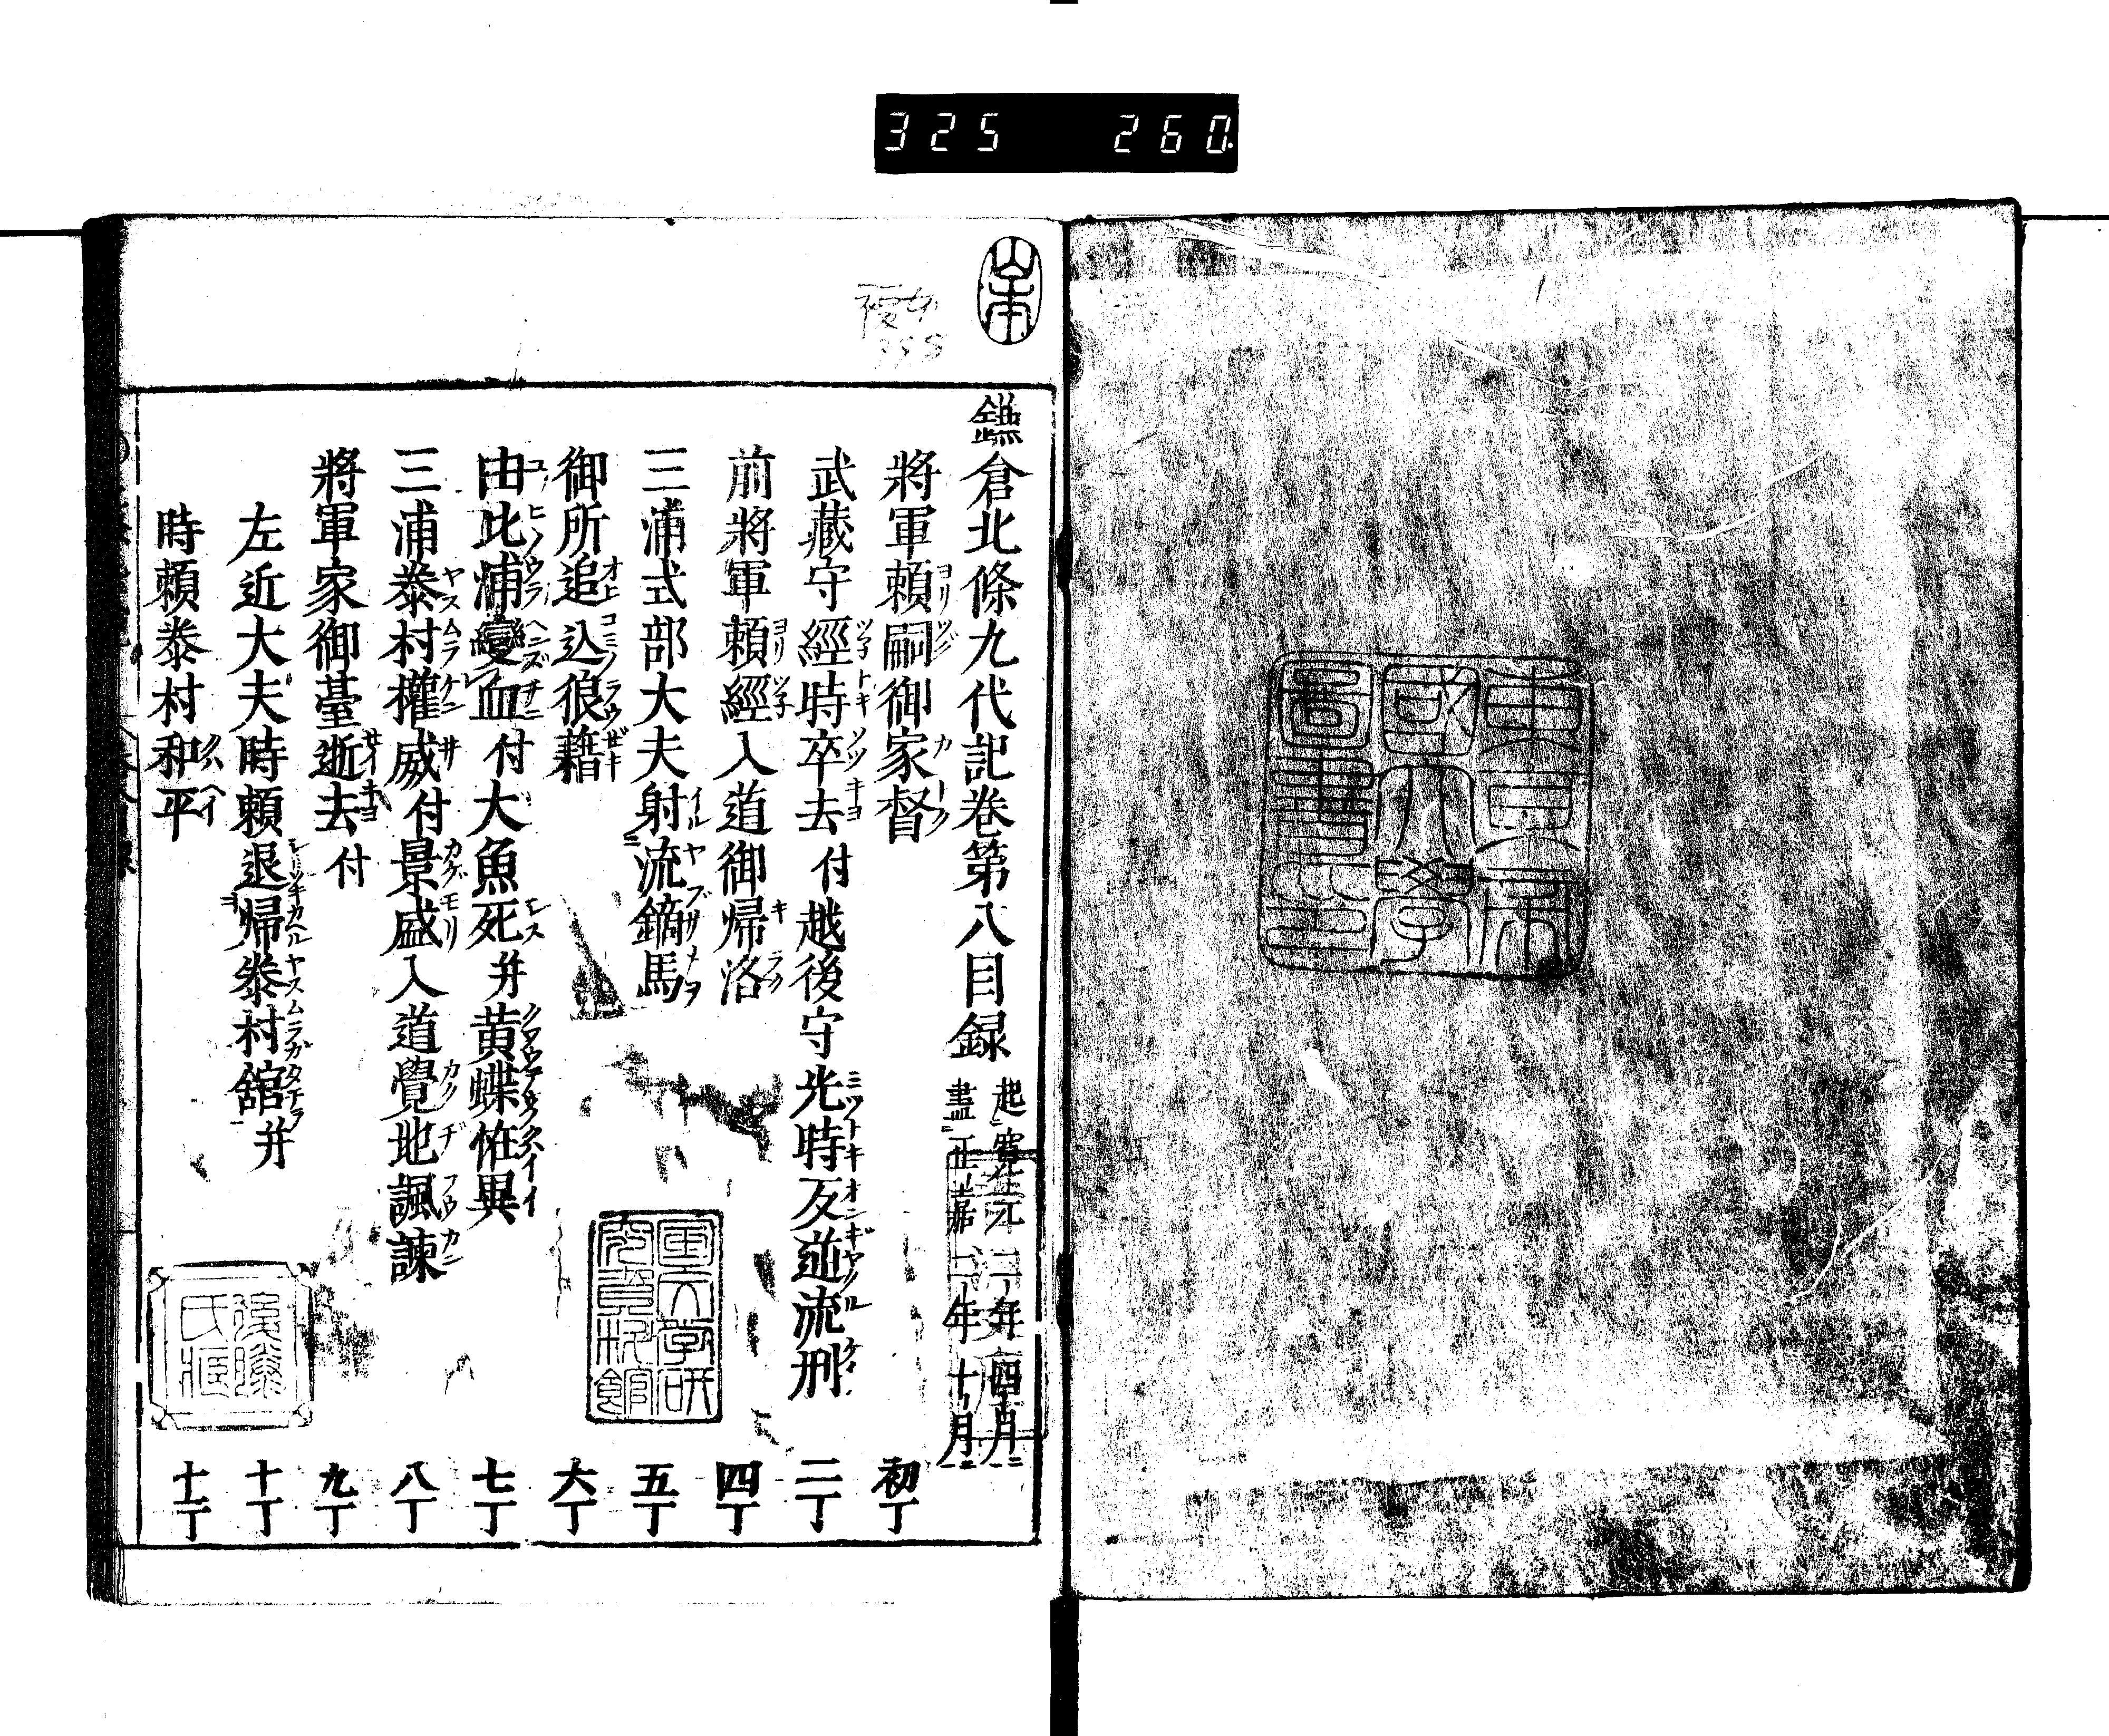 325 260
東京帝
國大學
圖書印
山本
複写
358
鎌倉北條九代記巻第八目録
起寛元二年四月
盡正嘉二年十月
將軍頼嗣御家督 初丁
武藏守經時卒去付越後守光時反逆流刑 二丁
前將軍頼經入道御帰洛 四丁
三浦式部大夫射流鏑馬 五丁
御所追込狼藉 六丁
由比浦變血付大魚死并黄蝶恠異 七丁
三浦泰村權威付景盛入道覺地諷諫 八丁
將軍家御臺逝去付 九丁
左近大夫時頼退帰泰村舘并 十丁
時頼泰村和平 十一丁
国文学研
究資料館
後藤
氏